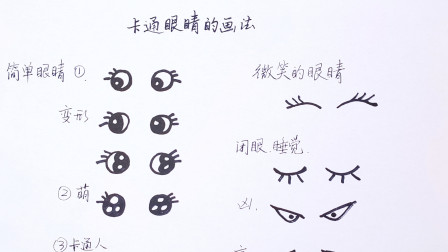 卡通眼睛的画法
简单眼睛 ①
变形
② 萌
③ 卡通人
微笑的眼睛
闭眼.睡觉.
凶.